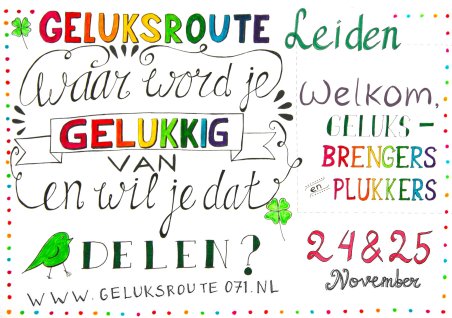 GELUKSROUTE Leiden
waar word je
GELUKKIG
VAN
en wil je dat
DELEN?
WWW.GELUKSROUTE071.NL
Welkom,
GELUKS-
BRENGERS
en
PLUKKERS
24&25
November